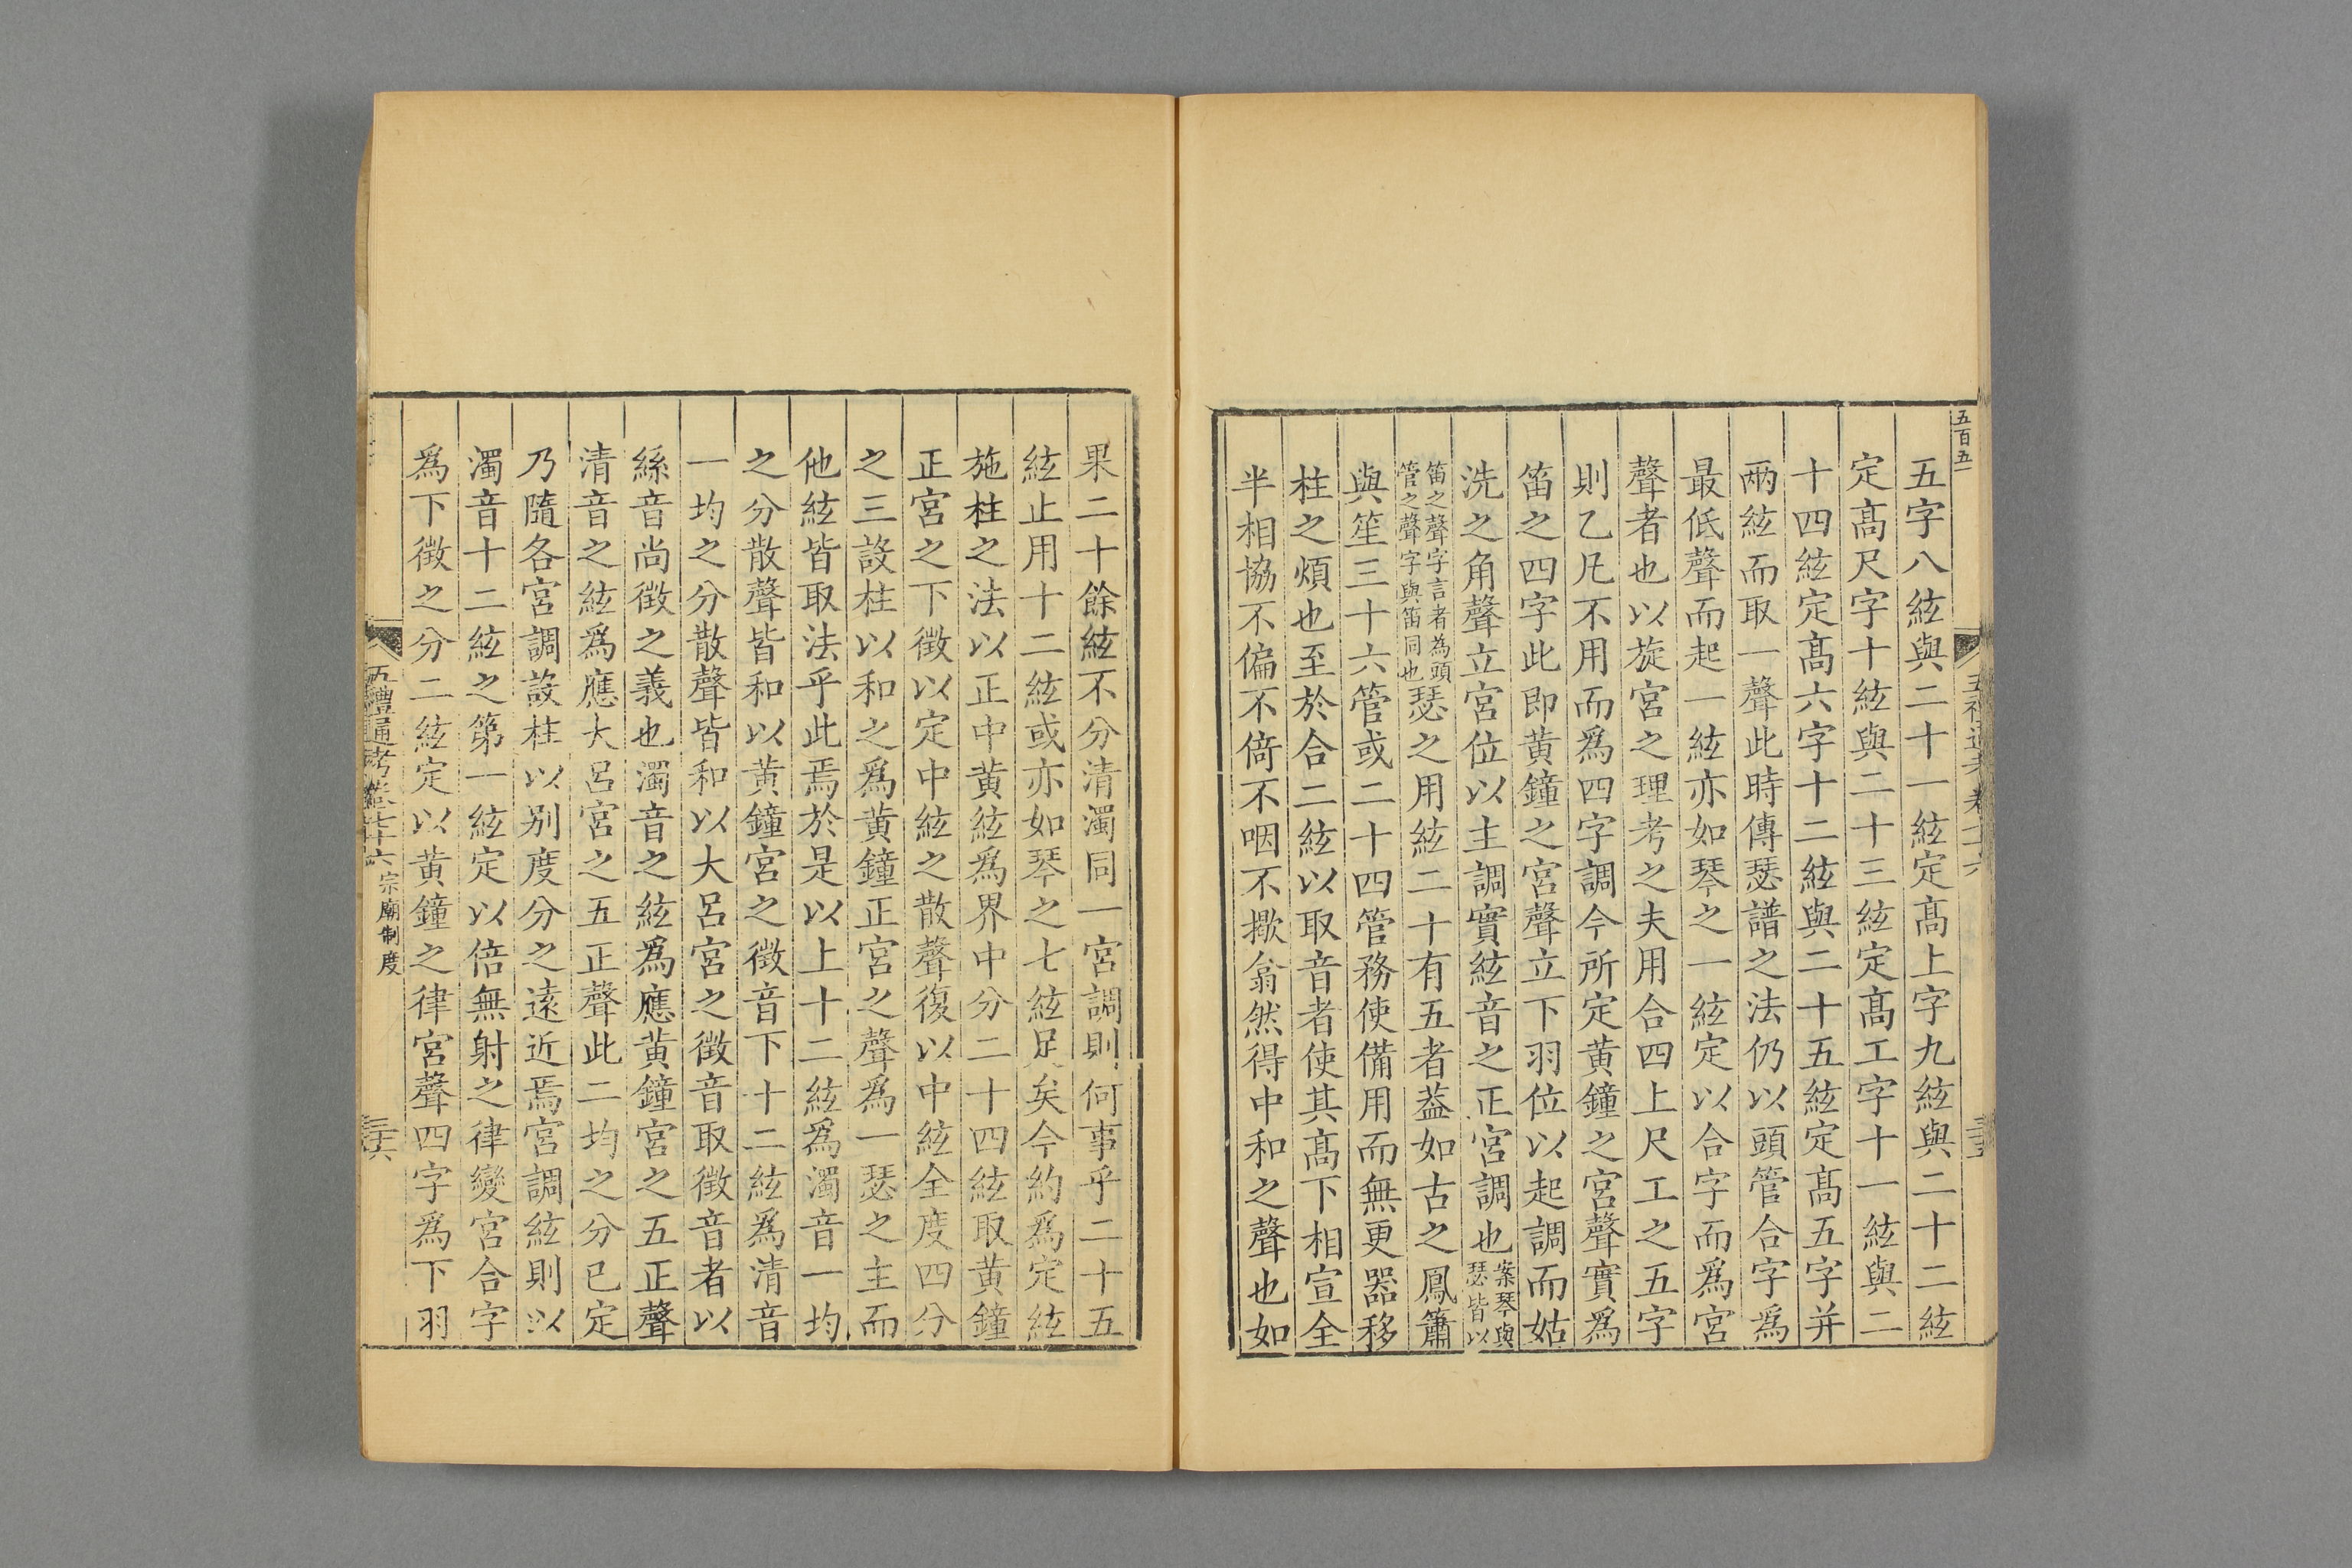 五百五一
五字八絃與二十一絃定髙上字九絃與二十二絃
定髙尺字十絃與二十三絃定髙工字十一絃與二
十四絃定髙六字十二絃與二十五絃定髙五字并
兩絃而取一聲此時傳瑟譜之法仍以頭管合字爲
最低聲而起一絃亦如琴之一絃定以合字而爲宮
聲者也以旋宮之理考之夫用合四上尺工之五字
則乙凡不用而爲四字調今所定黄鐘之宮聲實爲
笛之四字此即黄鐘之宮聲立下羽位以起調而姑
洗之角聲立宮位以主調實絃音之正宮調也案琴與瑟皆以
笛之聲字言者為頭管之聲字與笛同也瑟之用絃二十有五者葢如古之鳳簫
與笙三十六管或二十四管務使備用而無更器移
柱之煩也至於合二絃以取音者使其髙下相宣全
半相協不偏不倚不咽不撳翕然得中和之聲也如
果二十餘絃不分清濁同一宮調則何事乎二十五
絃止用十二絃或亦如琴之七絃足矣今約爲定絃
施柱之法以正中黄絃爲界中分二十四絃取黄鐘
正宮之下徴以定中絃之散聲復以中絃全度四分
之三設柱以和之爲黄鐘正宮之聲爲一瑟之主而
他絃皆取法乎此焉於是以上十二絃爲濁音一均
之分散聲皆和以黄鐘宮之徴音下十二絃爲清音
一均之分散聲皆和以大呂宮之徴音取徴音者以
絲音尚徴之義也濁音之絃爲應黄鐘宮之五正聲
清音之絃爲應大呂宮之五正聲此二均之分已定
乃隨各宮調設柱以别度分之遠近焉宮調絃則以
濁音十二絃之第一絃定以倍無射之律變宮合字
爲下徴之分二絃定以黄鐘之律宮聲四字爲下羽
五禮通考卷七十六 宗廟制度 三十六